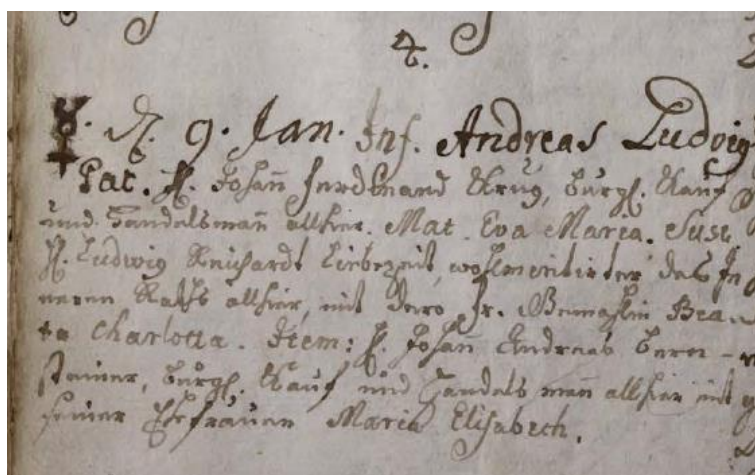 4.
☿. d. 9. Jan. Inf. Andreas Ludwig
Pat. H. Johan̄ Ferdinand Krug, burgl. Kauf
und Handelsman̄ allhier. Mat. Eva Maria. Susc.
H. Ludwig Reichardt Liebezeit, wohlmeritirter des In
neren Raths allhier, mit dero Fr. Bea
ta Charlotta. Item: H. Johan̄ Andreas Bern-
steiner, burgl. Kauf und Handelsman̄ allhier mit
seiner Ehefrauen Maria Elisabeth.